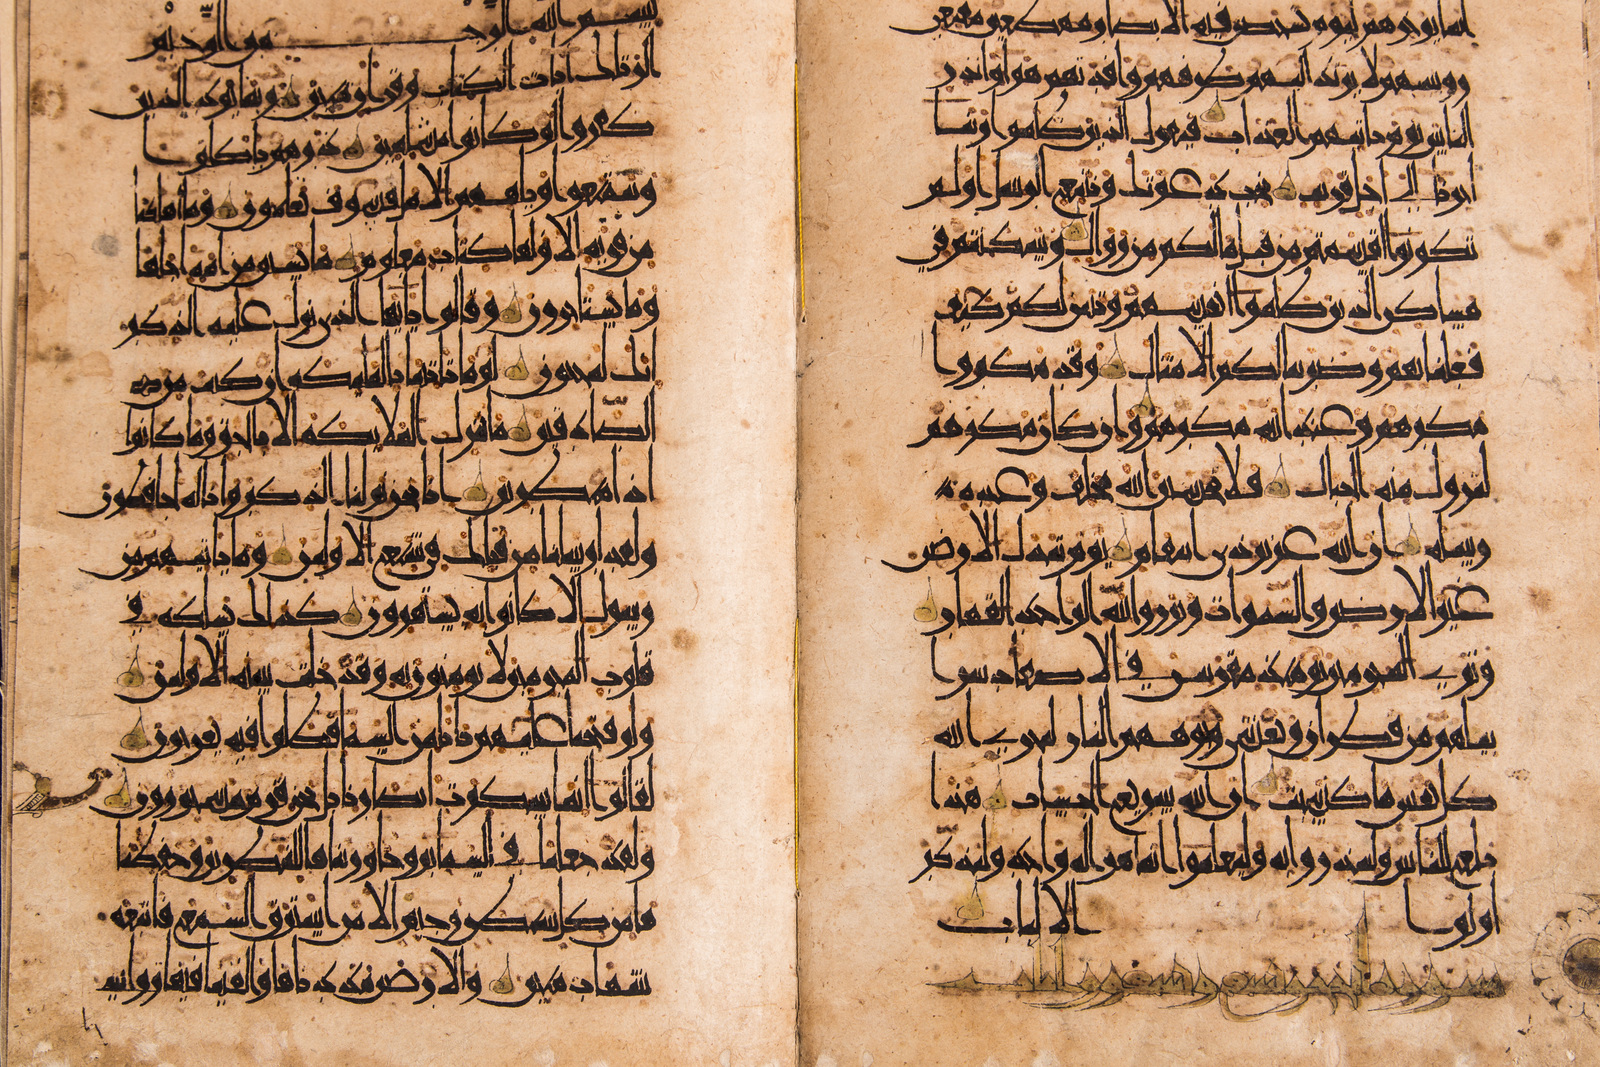 انما يوخرهم ليوم تشخص فيه الابصار مهطعين مقنعي
رووسهم لا يرتد اليهم طرفهم وافدتهم هوا وانذر
الناس يوم ياتيهم العذاب فيقول الذين ظلموا ربنا
اخرنا الى اجل قريب نجب دعوتك ونتبع الرسل اولم
تكونوا اقسمتم من قبل ما لكم من زوال وسكنتم في
مساكن الذين ظلموا انفسهم وتبين لكم كيف
فعلنا بهم وضربنا لكم الامثال وقد مكروا
مكرهم وعند الله مكرهم وان كان مكرهم
لتزول منه الجبال فلا تحسبن الله مخلف وعده
رسله ان الله عزيز ذو انتقام يوم تبدل الارض
غير الارض والسموات وبرزوا لله الواحد القهار
وترى المجرمين يومئذ مقرنين في الاصفاد سرا
بيلهم من قطران وتغشى وجوههم النار ليجزي الله
كل نفس ما كسبت ان الله سريع الحساب هذا
بلغ للناس ولينذروا به وليعلموا انما هو اله واحد وليذكر
اولوا الالباب
سورة الحجر
بسم الله الرحمن الرحيم
الر تلك ايات الكتاب وقران مبين ربما يود الذين
كفروا لو كانوا مسلمين ذرهم ياكلوا
ويتمتعوا ويلههم الامل فسوف يعلمون وما اهلكنا
من قرية الا ولها كتاب معلوم ما تسبق من امة اجلها
وما يستاخرون وقالوا يايها الذي نزل عليه الذكر
انك لمجنون لو ما تاتينا بالمليكة ان كنت من
الصادقين ما ننزل الملايكة الا بالحق وما كانوا
اذا منظرين انا نحن نزلنا الذكر وانا له لحافظون
ولقد ارسلنا من قبلك في شيع الاولين وما ياتيهم من
رسول الا كانوا به يستهزون كذلك نسلكه في
قلوب المجرمين لا يومنون به وقد خلت سنة الاولين
ولو فتحنا عليهم بابا من السما فظلوا فيه يعرجون
لقالوا انما سكرت ابصارنا بل نحن قوم مسحورون
ولقد جعلنا في السما بروجا وزيناها للناظرين وحفظنا
ها من كل شيطن رجيم الا من استرق السمع فاتبعه
شهاب مبين والارض مددناها والقينا فيها رواسي